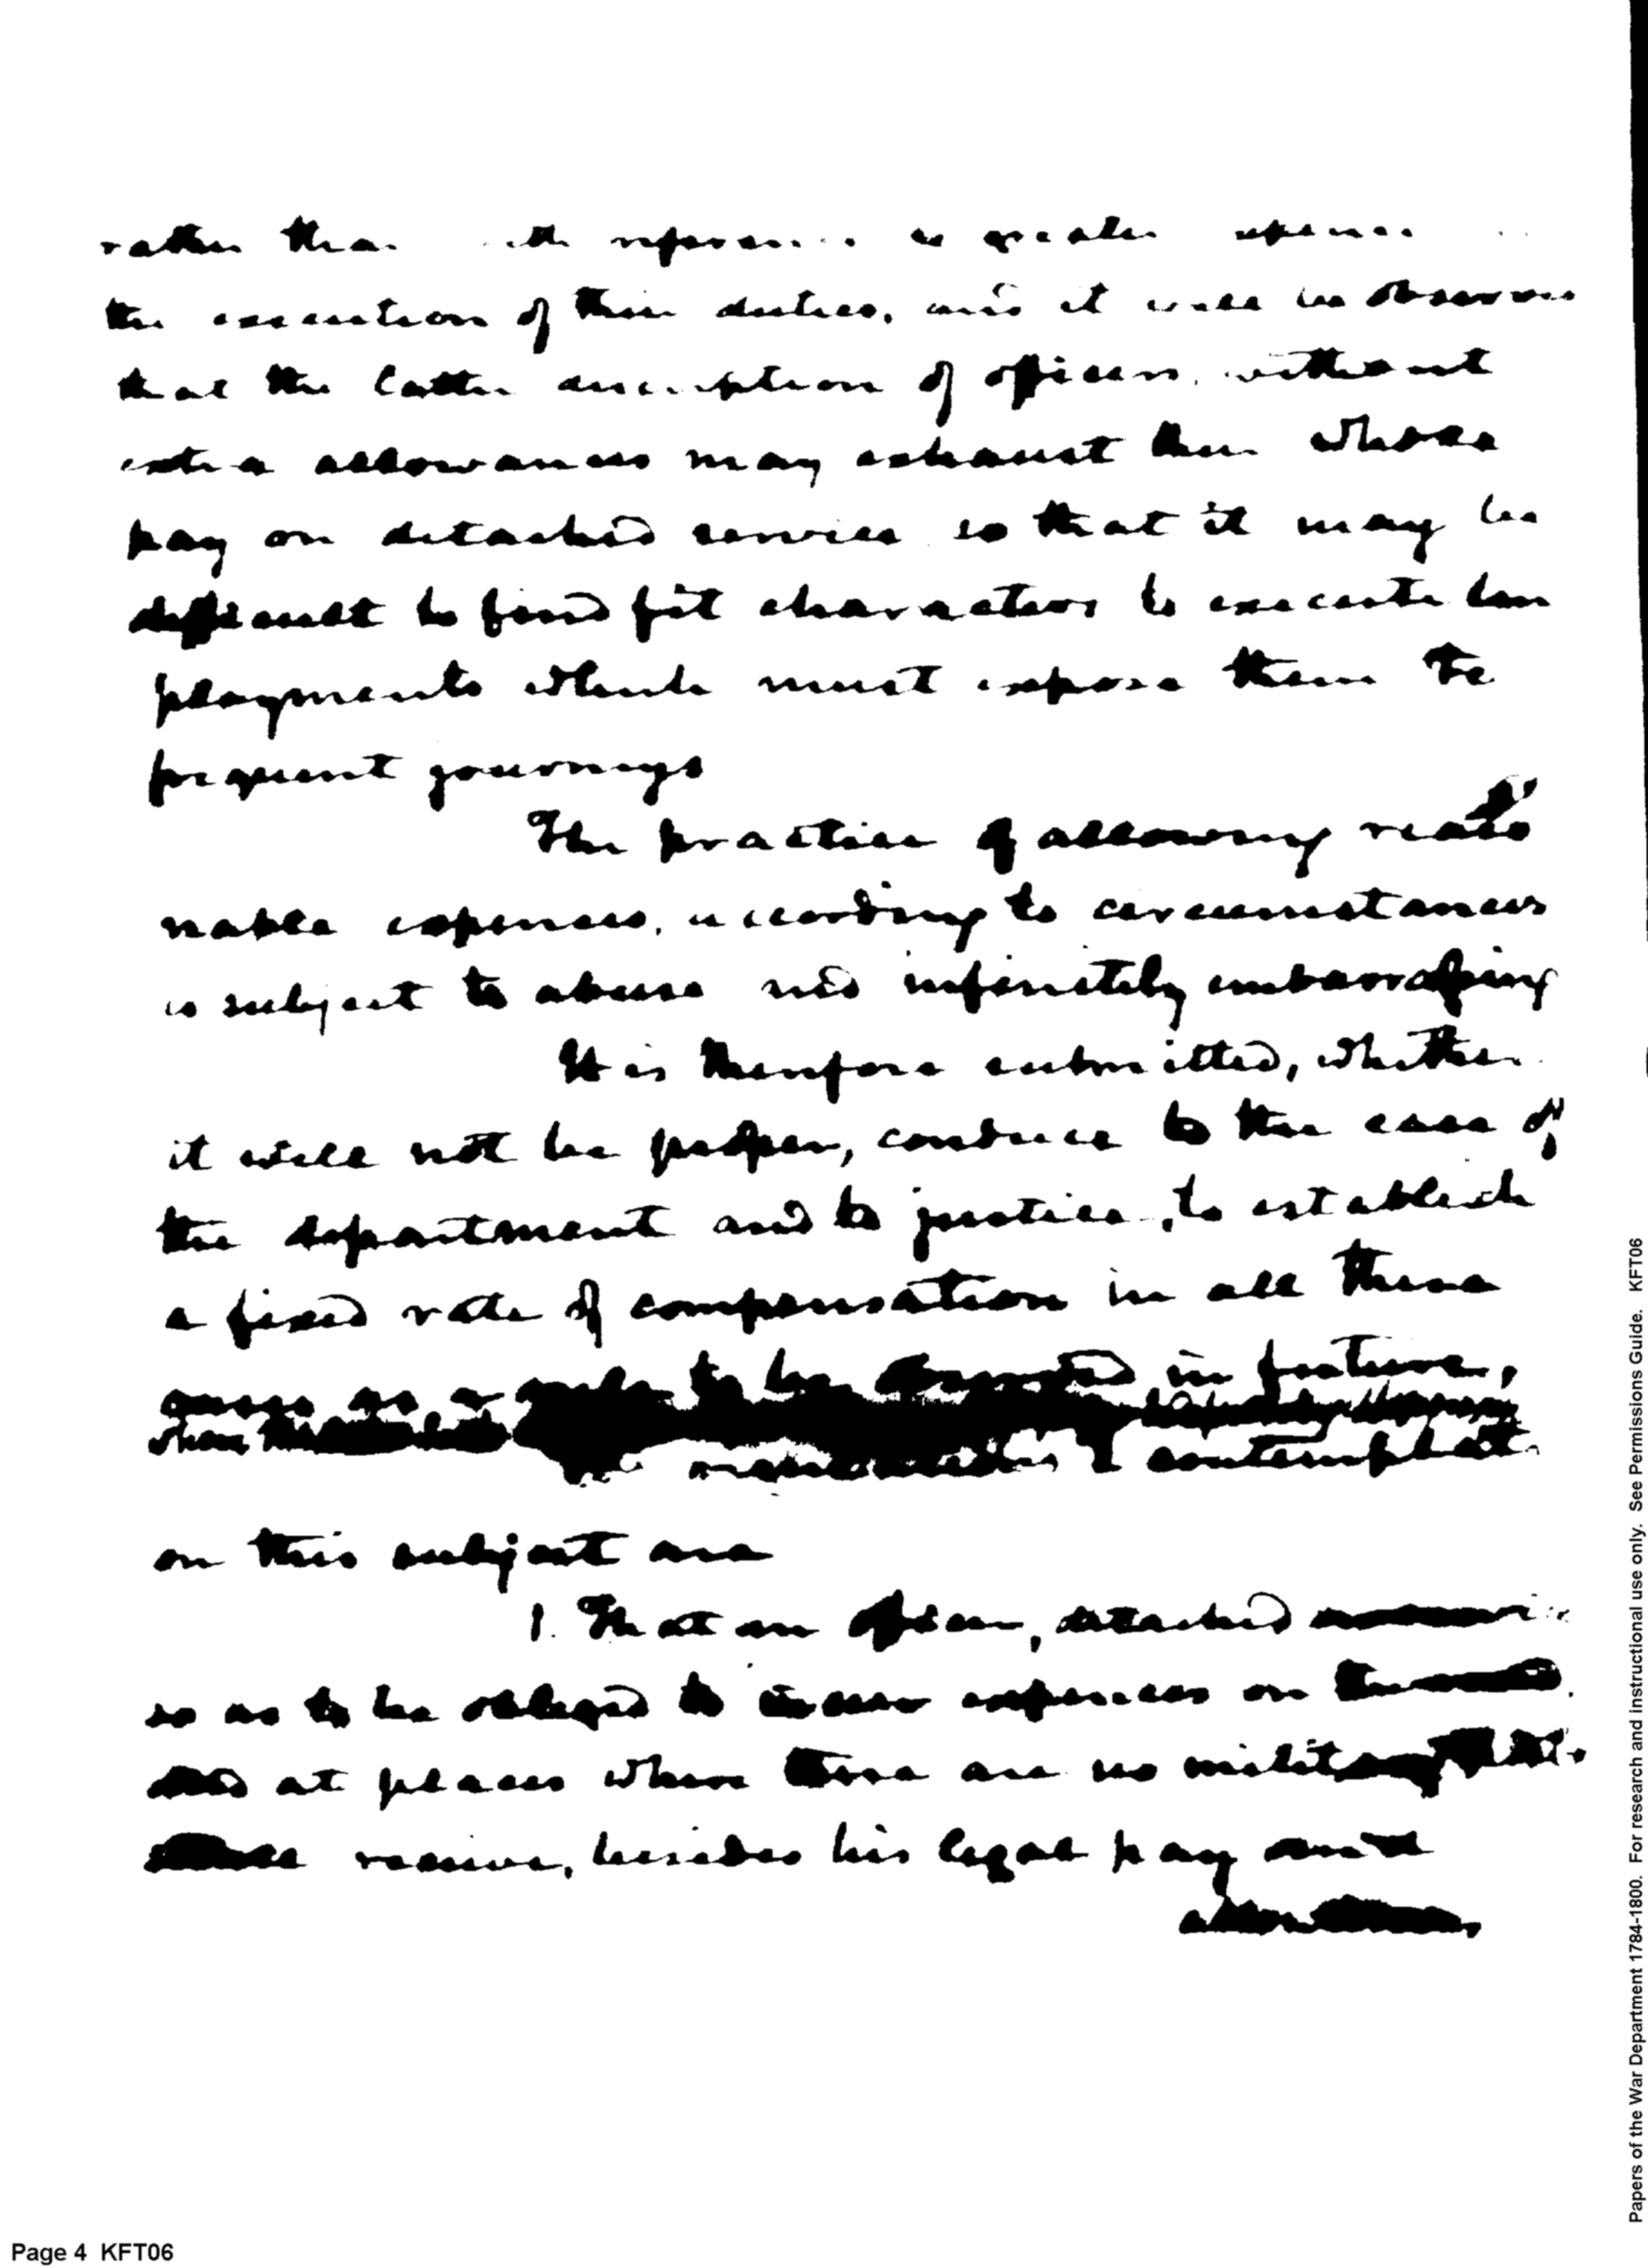 rather than with reference to greater expences
the execution of their duties, and it will be observed
that the latter description of officers, without
extra allowances may exhaust their whole
pay on detached service so that it may be
difficult to find fit characters to execute em
ployments which must expose them to
frequent journeys
The practice of allowing reaso
nable expences, according to circumstances
is subject to abuse and infinitely embarrassing
It is therefore submitted, whether
it will not be proper, conduce to the ease of
the department and to justice, to establish
a fixed rate of compensation in all these
cases as a rule to be in future,
where
I contemplate
on this subject are
1. That an officer, detached
so as to be obliged to incur expences on the road
and at places where there are no military
shall receive, besides his legal pay and
Page 4 KFT06
Papers of the War Department 1784-1800. For research and instructional use only. See Permissions Guide. KFT06